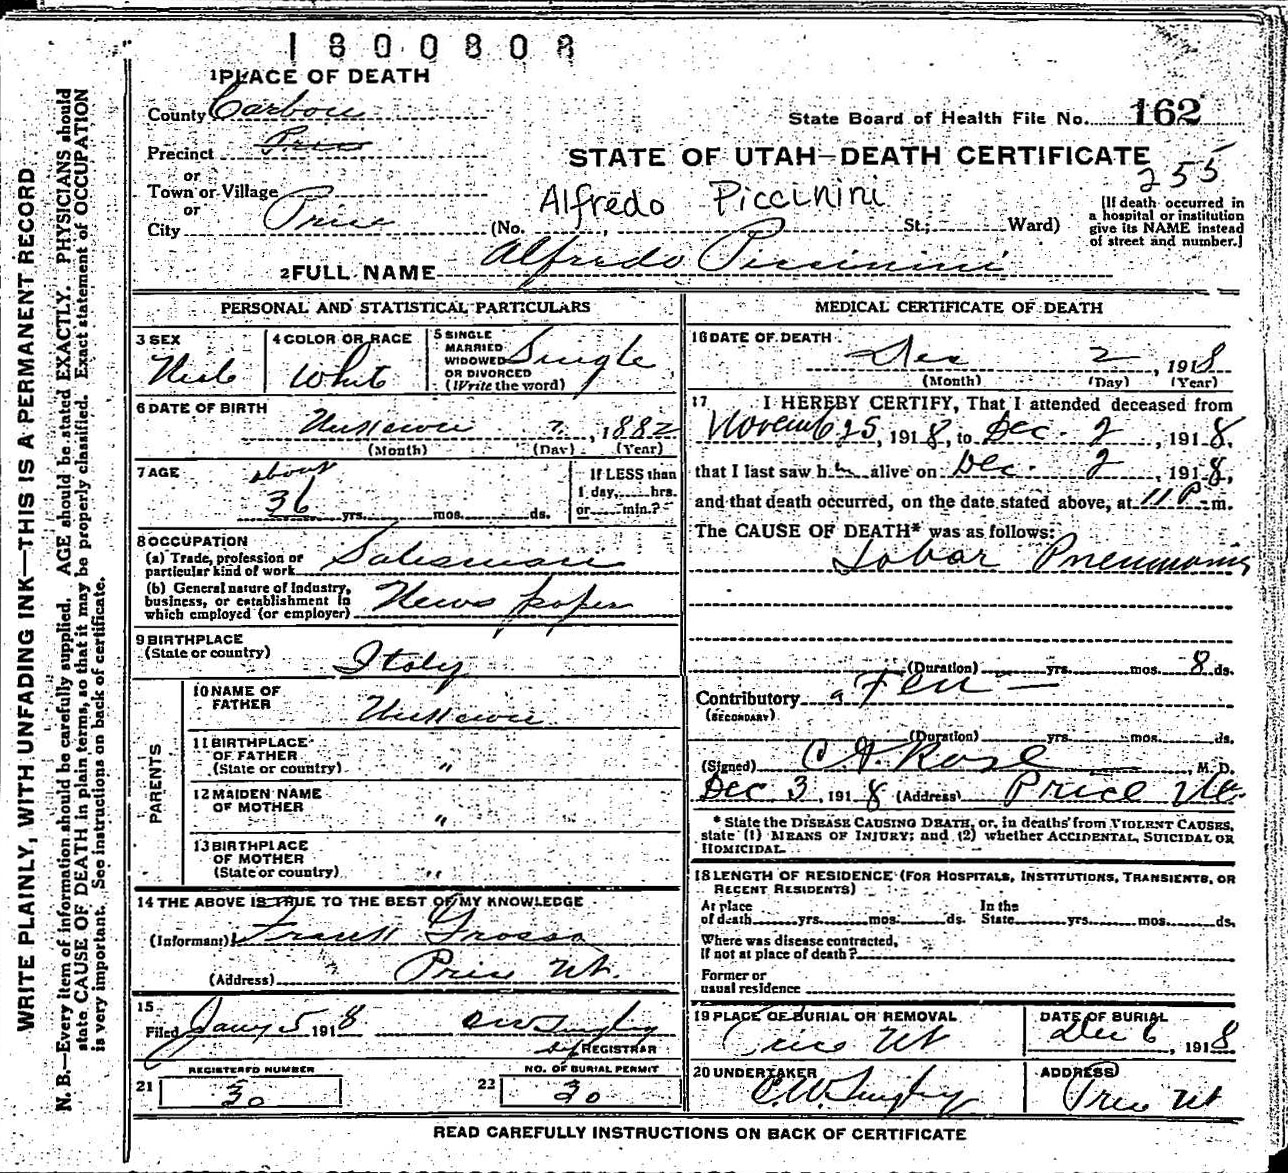 1800808
1 PLACE OF DEATH
County Carbon
State Board of Health File No. 162
Precinct Price
or
STATE OF UTAH—DEATH CERTIFICATE
255
Town or Village
or
Alfredo Piccinini
City Price (No. St.; Ward)
[If death occurred in
a hospital or institution
give its NAME instead
of street and number.]
2 FULL NAME Alfredo Piccinini
WRITE PLAINLY, WITH UNFADING INK—THIS IS A PERMANENT RECORD
N. B.—Every item of information should be carefully supplied. AGE should be stated EXACTLY. PHYSICIANS should
state CAUSE OF DEATH in plain terms, so that it may be properly classified. Exact statement of OCCUPATION
is very important. See instructions on back of certificate.
PERSONAL AND STATISTICAL PARTICULARS
3 SEX
4 COLOR OR RACE
White
5 SINGLE
MARRIED
WIDOWED
OR DIVORCED
(Write the word)
Single
6 DATE OF BIRTH
Unknown ?, 1882
(Month) (Day) (Year)
7 AGE
about
36 yrs. mos. ds.
If LESS than
1 day, hrs.
or min.?
8 OCCUPATION
(a) Trade, profession or
particular kind of work Salesman
(b) General nature of Industry,
business, or establishment in
which employed (or employer) News paper
9 BIRTHPLACE
(State or country)
Italy
PARENTS
10 NAME OF
FATHER
Unknown
11 BIRTHPLACE
OF FATHER
(State or country) "
12 MAIDEN NAME
OF MOTHER "
13 BIRTHPLACE
OF MOTHER
(State or country) "
14 THE ABOVE IS TRUE TO THE BEST OF MY KNOWLEDGE
(Informant) Frank Grosso
(Address) Price Ut.
15
Filed Jany 5 1918
REGISTRAR
REGISTERED NUMBER
21 30
NO. OF BURIAL PERMIT
22 30
MEDICAL CERTIFICATE OF DEATH
16 DATE OF DEATH
Dec 2, 1918
(Month) (Day) (Year)
17 I HEREBY CERTIFY, That I attended deceased from
Novemb 25, 1918, to Dec. 2, 1918,
that I last saw him alive on Dec. 2, 1918,
and that death occurred, on the date stated above, at 11 P m.
The CAUSE OF DEATH* was as follows:
Lobar Pneumonia
(Duration) yrs. mos. 8 ds.
Contributory
(SECONDARY)
(Duration) yrs. mos. ds.
(Signed) Rose, M. D.
Dec 3, 1918 (Address) Price Ut.
* State the DISEASE CAUSING DEATH, or, in deaths from VIOLENT CAUSES,
state (1) MEANS OF INJURY; and (2) whether ACCIDENTAL, SUICIDAL OR
HOMICIDAL.
18 LENGTH OF RESIDENCE (FOR HOSPITALS, INSTITUTIONS, TRANSIENTS, OR
RECENT RESIDENTS)
At place
of death yrs. mos. ds.
In the
State yrs. mos. ds.
Where was disease contracted,
if not at place of death?
Former or
usual residence
19 PLACE OF BURIAL OR REMOVAL
Price Ut
DATE OF BURIAL
Dec 6, 1918
20 UNDERTAKER
ADDRESS
Price Ut
READ CAREFULLY INSTRUCTIONS ON BACK OF CERTIFICATE